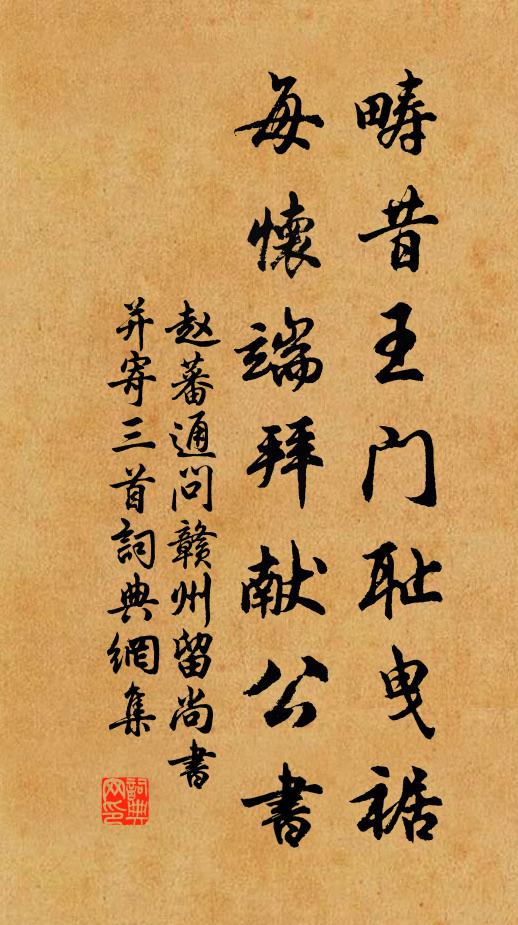 畴昔王门耻曳裾
每懷端拜献公書
赵蕃通问赣州留尚書
并寄三首詞典網集
詞典网印